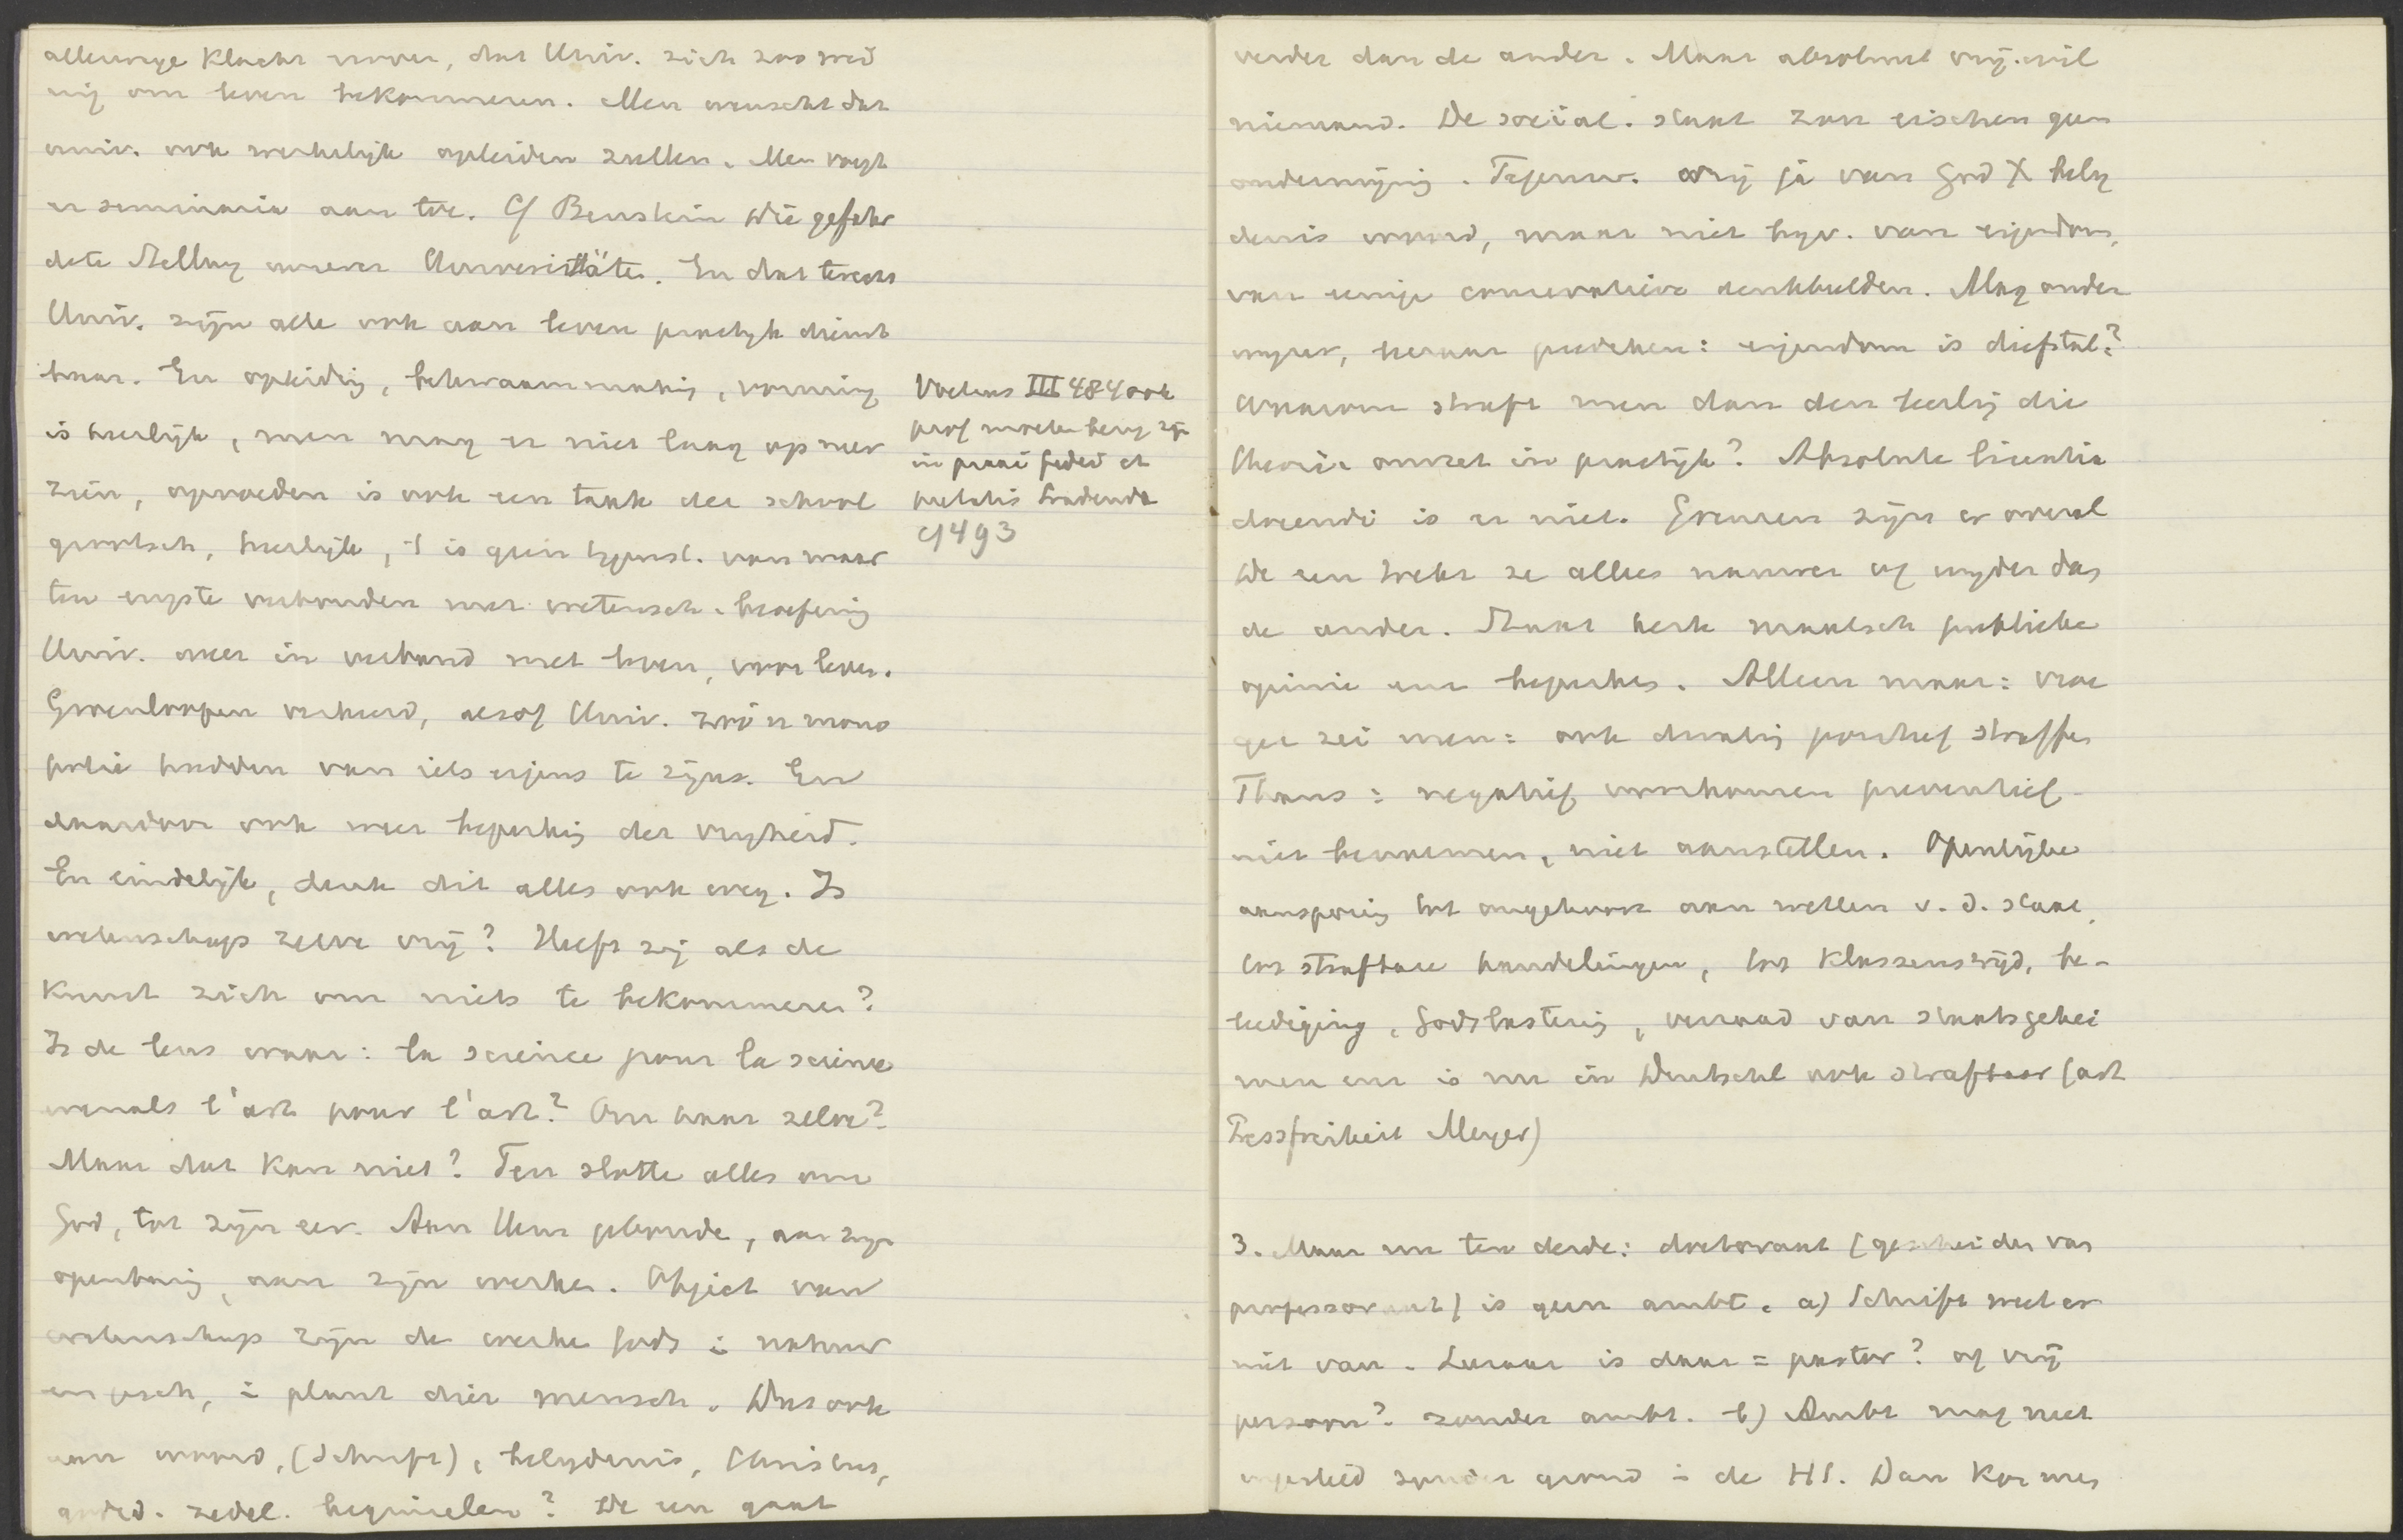 allerwege klacht erover, dat Univ. zich zoo wei
nig om leven bekommeren. Men wenscht dat
univ. ook werkelijk opleiden zullen. Men voegt
er seminaria aan toe. Cf Bernstein Die gefähr
dete Stellung unserer Universitäten. En dat terecht
Univ. zijn alle ook aan leven practijk dienst
baar. En opleiding, bekwaammaking, vorming
is heerlijk, men mag er niet laag op neer
zien, opvoeden is ook een taak der school
grootsch, heerlijk, 't is geen tegenst. van maar
ten engste verbonden met wetensch. beoefening
Univ. meer in verband met leven, voor leven.
Groenloopen verkeerd, alsof Univ. zoo'n mono
polie hadden van iets eigens te zijn. En
daardoor ook weer beperking der vrijheid.
En eindelijk, denk dit alles ook weg. Is
wetenschap zelve vrij? Heeft zij als de
kunst zich om niets te bekommeren?
Is de leus waar: la science pour la science
evenals l'art pour l'art? Om haar zelve?
Maar dat kan niet? Ten slotte alles om
God, tot zijn eer. Aan Hem gebonde, aan zijn
openbaring, aan zijn werken. Object van
wetenschap zijn de werke Gods in natuur
en gesch, in plant dier mensch. Dus ook
aan woord, (Schrift), belydenis, Christus,
godsd. zedel. beginselen? De een gaat
Voetius III 484 ook
prof moeten
in
prelatis
cf 493
verder dan de ander. Maar absoluut vrij wil
niemand. De social. staat zou eischen geen
ondermijning. Tegenw. vrij ja van God X bely
denis woord, maar niet bijv. van eigendom,
van eenige conservatieve denkbeelden. Mag onder
wijzer, leeraar prediken: eigendom is diefstal?
Waarom straft men dan den leerling die
theorie omzet in practijk? Absolute licentia
docendi is er niet. Grenzen zijn er overal
De een trekt ze alleen nauwer of wyder dan
de ander. Staat kerk maatsch publieke
opinie enz beperken. Alleen maar: vroe
ger zei men: ook dwaling positief straffen
Thans: negatief voorkomen preventief
niet benoemen, niet aanstellen. Openlijke
aansporing tot ongehoorz aan wetten v. d. staat,
tot strafbare handelingen, tot klassenstrijd, be-
leediging, Godslastering, verraad van staatsgehei
men enz is nu in Duitschl ook strafbaar (art
Pressfreiheit Meyer)
3. Maar nu ten derde: doctoraat (gescheiden van
professoraat) is geen ambt. a) Schrift weet er
niet van. Leeraar is daar = pastor? of vrij
persoon? zonder ambt. b) Ambt mag niet
ingesteld zonder grond in de HS. Dan kon men